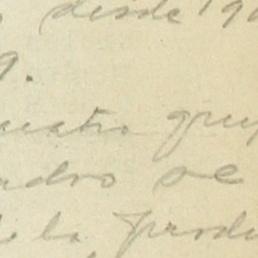 desde 19
9.
cuatro grup
adro se
de la produ